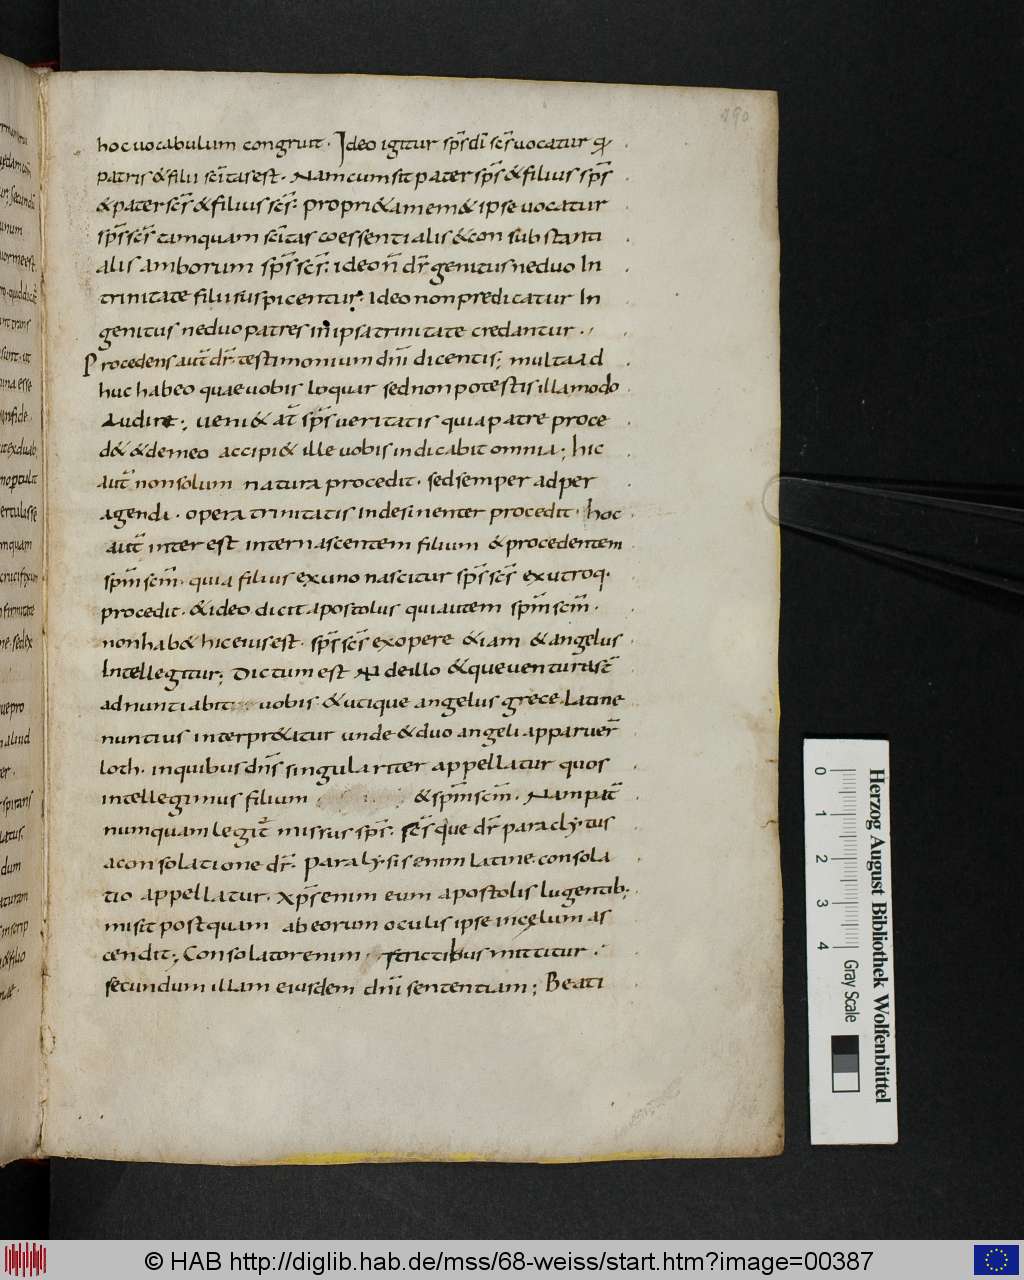 190
hoc vocabulum congruit. Ideo igitur sp̄s dī sc̄s vocatur q̄
patris & filii sc̄itas est. Nam cum sit pater sp̄s & filius sp̄s
& pater sc̄s & filius sc̄s. propri& amem& ipse vocatur
sp̄s sc̄s tamquam sc̄itas coessentialis & consubstanti
alis amborum sp̄s sc̄s. ideo n̄ dr̄ genitus ne duo In
trinitate filii suspicentur. Ideo non predicatur In
genitus ne duo patres in ipsa trinitate credantur.
Procedens aut̄ dr̄ testimonium dn̄i dicentis; multa ad
huc habeo quae vobis loquar sed non potestis illa modo
Audire; veni& at̄ sp̄s veritatis qui a patre proce
d& & de meo accipi& ille vobis indicabit omnia; hic
aut̄ non solum natura procedit. sed semper ad per
agenda. opera trinitatis indesinenter procedit. hoc
aut̄ interest inter nascentem filium & procedentem
sp̄m sc̄m. quia filius ex uno nascitur sp̄s sc̄s ex utroq.
procedit. & ideo dicit apostolus qui autem sp̄m sc̄m.
non hab& hic eius est. sp̄s sc̄s ex opere &iam & angelus
Intellegitur; Dictum est N de illo & que ventura st̄
adnuntiabit vobis & utique angelus grece. Latine
nuntius interpr&atur unde & duo angeli apparuer̄
loth. in quibus dn̄s singulariter appellatur quos
intellegimus filium & sp̄m sc̄m. Nam pat̄
numquam legit̄ missus sp̄s. sc̄s que dr̄ paraclytus
a consolatione dr̄. paralysis enim latine consola
tio appellatur. xp̄s enim eum apostolis lugentib;
misit postquam ab eorum oculis ipse in cęlum as
cendit; Consolator enim. tristibus mittitur.
secundum illam eiusdem dn̄i sententiam; Beati
0 1 2 3 4 Gray Scale
Herzog August Bibliothek Wolfenbüttel
© HAB http://diglib.hab.de/mss/68-weiss/start.htm?image=00387